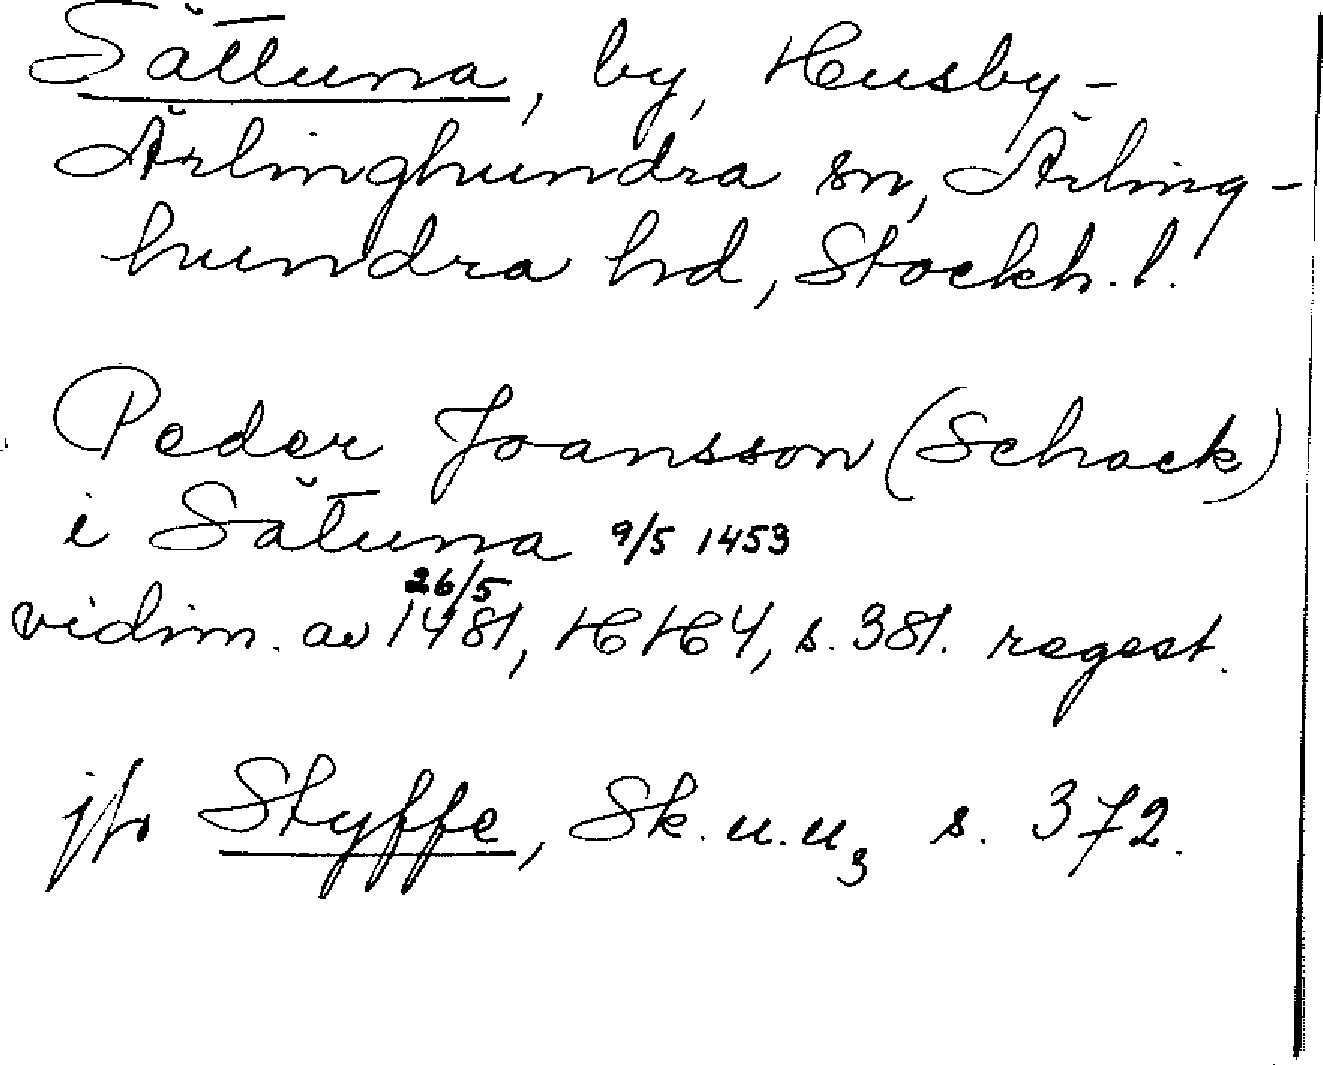 Sättuna, by, Husby-
Ärlinghundra sn, Ärling-
hundra hd, Stockh. l.
Peder Joansson (Schack)
i Sätuna 9/5 1453
vidim. av 26/5 1481, HH4, s. 381. regest.
jfr Styffe, Sk. u. u3 s. 372.